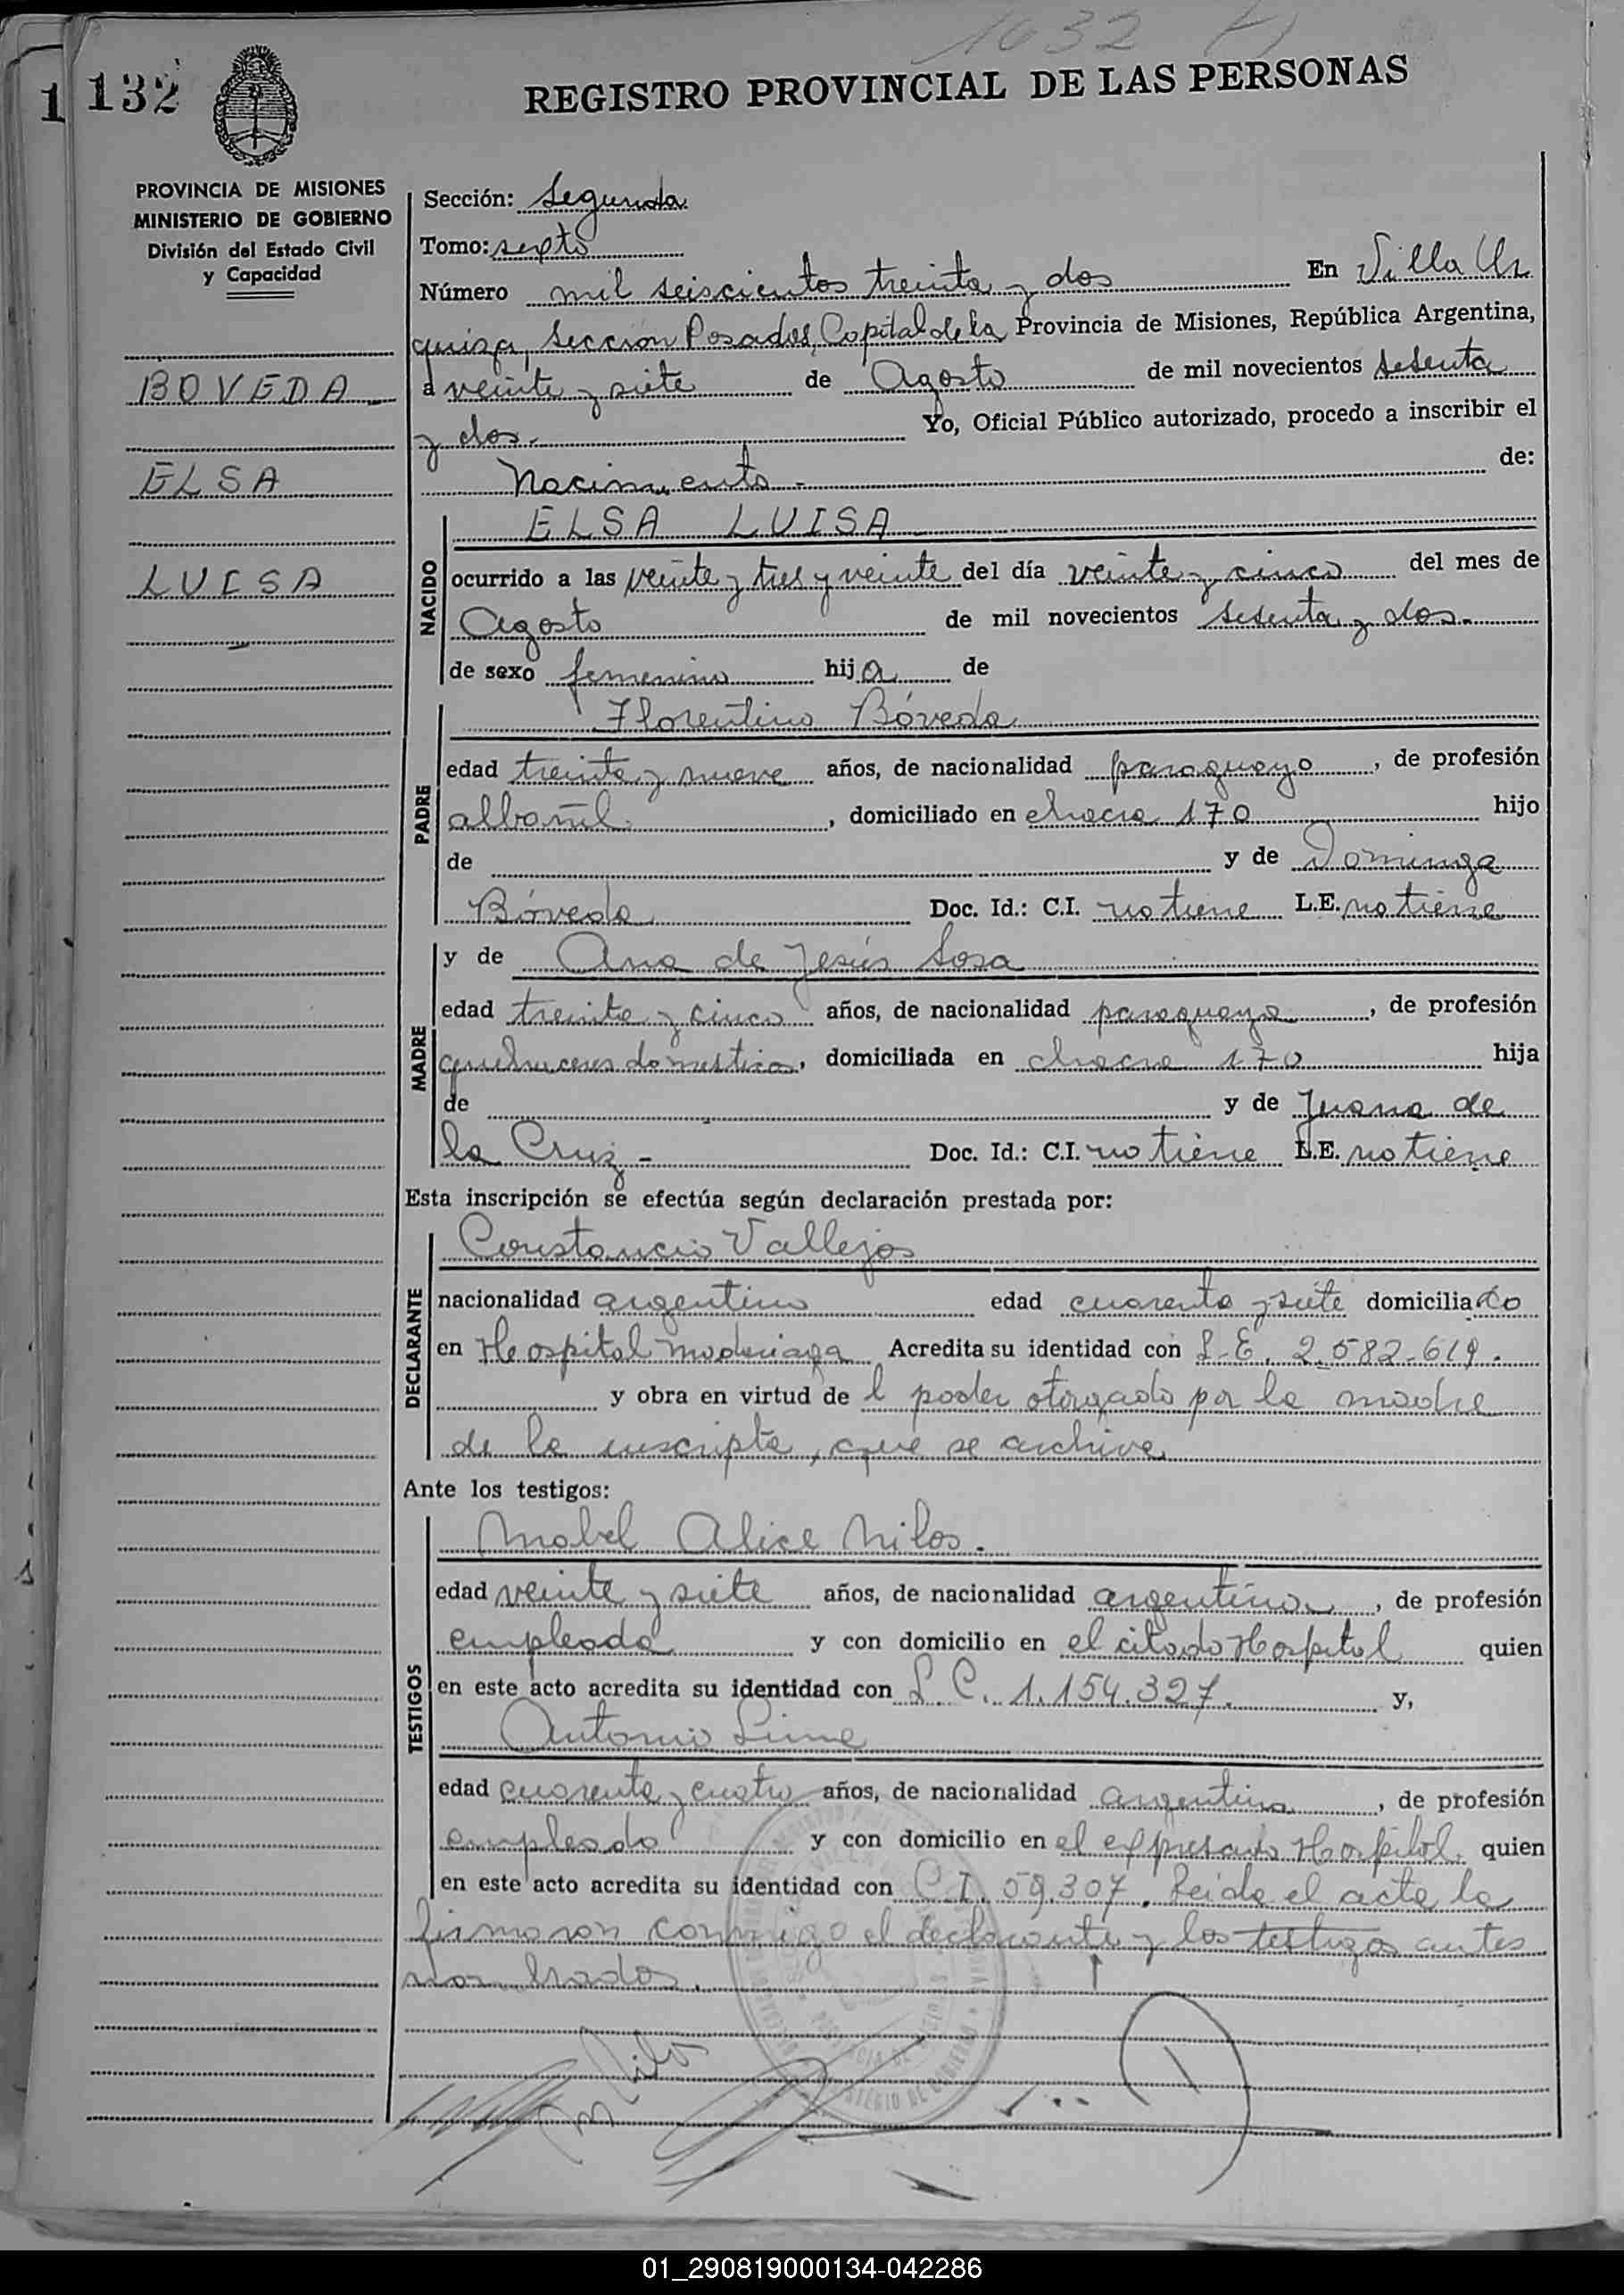 1632
1 132
REGISTRO PROVINCIAL DE LAS PERSONAS
PROVINCIA DE MISIONES
MINISTERIO DE GOBIERNO
División del Estado Civil
y Capacidad
BOVEDA
ELSA
LUISA
Sección: Segunda
Tomo: sexto
Número mil seiscientos treinta y dos En Villa Ur
quiza, Sección Posadas, Capital de la Provincia de Misiones, República Argentina,
a veinte y siete de Agosto de mil novecientos sesenta
y dos.- Yo, Oficial Público autorizado, procedo a inscribir el
Nacimiento - de:
NACIDO
ELSA LUISA
ocurrido a las veinte y tres y veinte del día veinte y cinco del mes de
Agosto de mil novecientos sesenta y dos.
de sexo femenino hija de
PADRE
Florentino Bóveda
edad treinta y nueve años, de nacionalidad paraguayo, de profesión
albañil, domiciliado en chacra 170 hijo
de y de Dominga
Bóveda Doc. Id.: C.I. no tiene L.E. no tiene
MADRE
y de Ana de Jesús Sosa
edad treinta y cinco años, de nacionalidad paraguaya, de profesión
quehaceres domesticos, domiciliada en chacra 170 hija
de y de Juana de
la Cruz - Doc. Id.: C.I. no tiene L.E. no tiene
Esta inscripción se efectúa según declaración prestada por:
DECLARANTE
Constancio Vallejos
nacionalidad argentino edad cuarenta y siete domiciliado
en Hospital Madariaga Acredita su identidad con L.E. 2.582.619.
y obra en virtud de l poder otorgado por la madre
de la inscripta, que se archiva
Ante los testigos:
TESTIGOS
Mabel Alice Milos.
edad veinte y siete años, de nacionalidad argentina, de profesión
empleada y con domicilio en el citado Hospital quien
en este acto acredita su identidad con L.C. 1.154.327. y,
Antonio Lime
edad cuarenta y cuatro años, de nacionalidad argentina, de profesión
empleado y con domicilio en el expresado Hospital. quien
en este acto acredita su identidad con C.I. 59.307. Leida el acta la
firmaron conmigo el declarante y los testigos antes
nombrados.
01_290819000134-042286